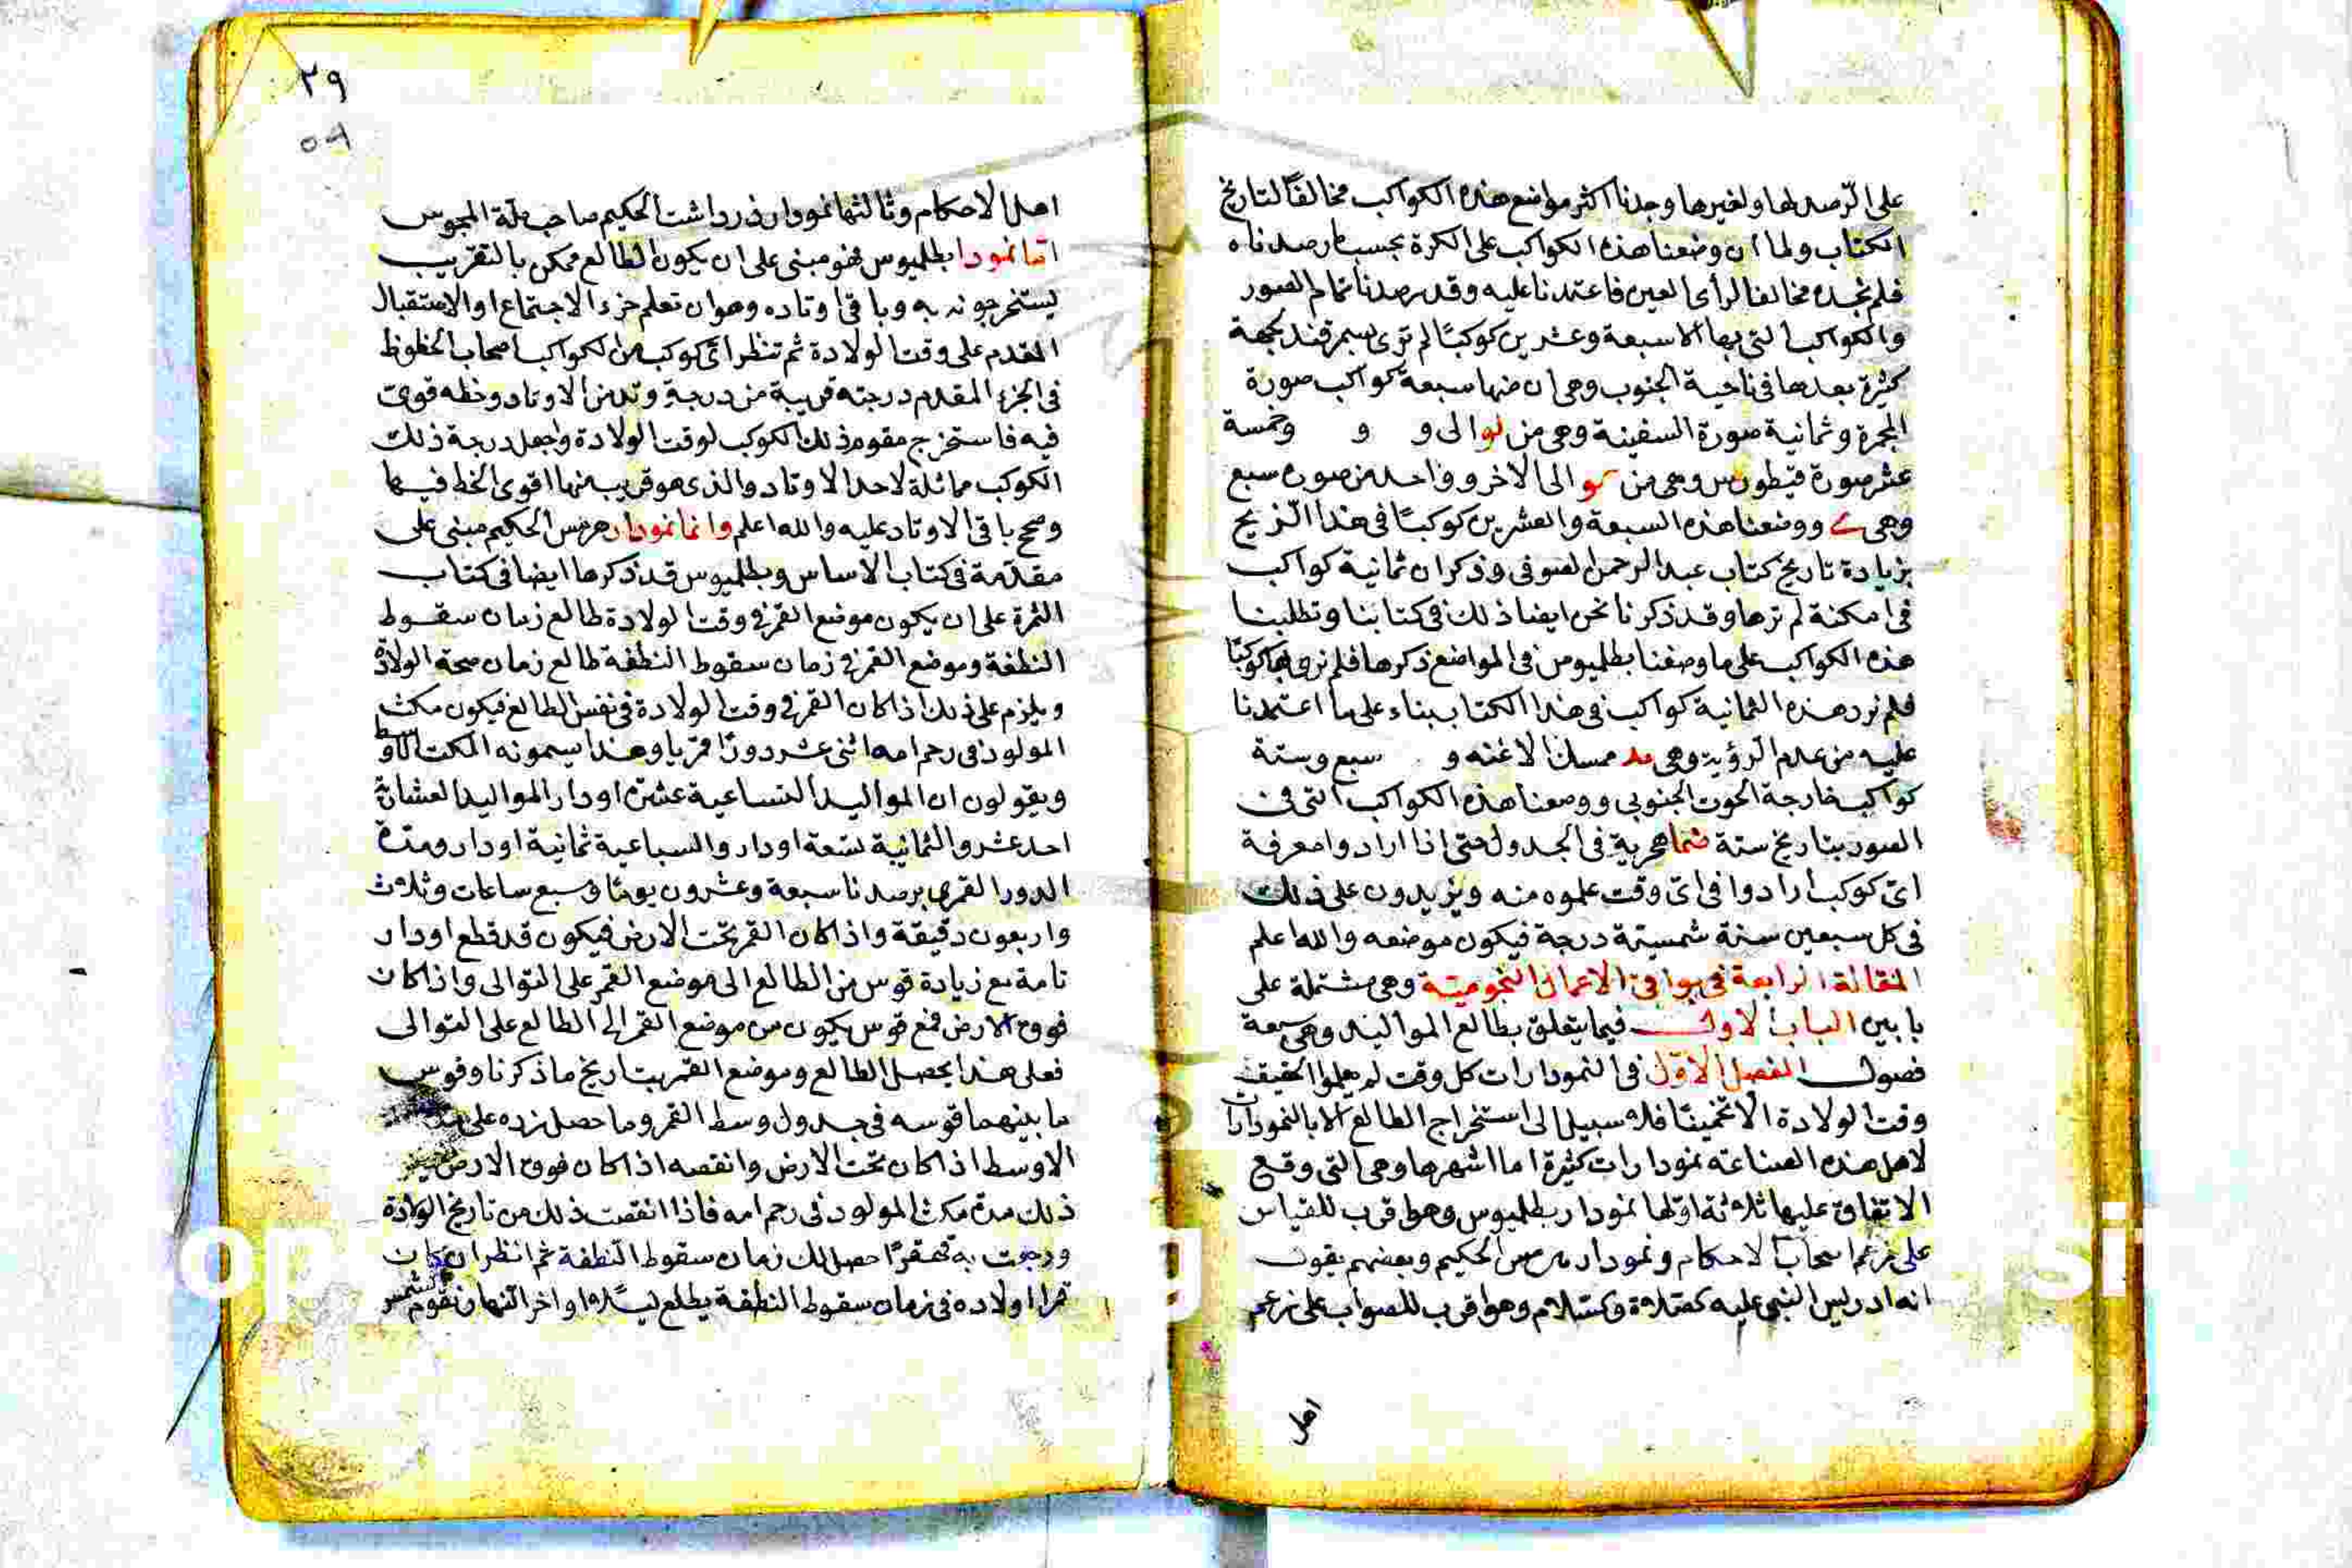 على الرصد لها ولغيرها وجدنا اكثر مواضع هذه الكواكب مخالفاً لتاريخ
الكتاب ولما ان وضعنا هذه الكواكب على الكرة بحسب ما رصدناه
فلم نجده مخالفا لرأى العين فاعتمدنا عليه وقد رصدنا تمام الصور
والكواكب التى بها الا سبعة وعشرين كوكبًا لم ترى بسمرقند لجهة
كثرة بعدها فى ناحية الجنوب وهى ان منها سبعة كواكب صورة
المجمرة وثمانية صورة السفينة وهى من لو الى و و وخمسة
عشر صورة قيطورس وهى من الى الاخر وواحد من صورة سبع
وهى ووضعنا هذه السبعة والعشرين كوكبًا فى هذا الزيج
بزيادة تاريخ كتاب عبد الرحمن الصوفى وذكر ان ثمانية كواكب
فى امكنة لم نرها وقد ذكرنا نحن ايضا ذلك فى كتابنا وتطلبنا
هذه الكواكب على ما وصفنا بطلميوس فى المواضع ذكرها فلم نرى بها كوكبًا
فلم نورد هذه الثمانية كواكب فى هذا الكتاب بناء على ما اعتمدنا
عليه من عدم الرؤية وهى يد ممسك الاعنه و سبع وستة
كواكب خارجة الحوت الجنوبى ووضعنا هذه الكواكب التى فى
الصور بتاريخ سنة ضما هجرية فى الجدول حتى اذا ارادوا معرفة
اىّ كوكب ارادوا فى اىّ وقت علموه منه ويزيدون على ذلك
فى كل سبعين سنة شمسية درجة فيكون موضعه والله اعلم
المقالة الرابعة فى بواقى الاعمال النجومية وهى مشتملة على
بابين الباب الاول فيما يتعلق بطالع المواليد وهى سبعة
فصول الفصل الاوّل فى النمودارات كل وقت لم يعلموا الحقيقة
وقت الولادة الا تخمينًا فلا سبيل الى استخراج الطالع الا بالنمودارات
لاهل هذه الصناعة نمودارات كثيرة اما اشهرها وهى التى وقع
الاتفاق عليها ثلاثة اولها نمودار بطلميوس وهو اقرب للقياس
على زعم اصحاب الاحكام ونمودار هرمس الحكيم وبعضهم يقول
انه ادريس النبى عليه الصلاة والسلام وهو اقرب للصواب على زعم
اهل
٢٩
اهل الاحكام وثالثها نمودار ذرداشت الحكيم صاحب ملة المجوس
امّا نمودار بطلميوس فهو مبنى على ان يكون الطالع ممكن بالتقريب
يستخرجونه به وباقى اوتاده وهو ان تعلم جزء الاجتماع او الاستقبال
المقدم على وقت الولادة ثم تنظر اىّ كوكب من الكواكب اصحاب الحظوظ
فى الجزء المقدم درجته قريبة من درجة وتد من الاوتاد وحظه قوى
فيه فاستخرج مقوم ذلك الكوكب لوقت الولادة واجعل درجة ذلك
الكوكب مماثلة لاحد الاوتاد والذى هو قريب منها اقوى الحظ فيها
وصحح باقى الاوتاد عليه والله اعلم وانما نمودار هرمس الحكيم مبنى على
مقدّمة فى كتاب الاساس وبطلميوس قد ذكرها ايضا فى كتاب
الثمرة على ان يكون موضع القمر فى وقت الولادة طالع زمان سقوط
النطفة وموضع القمر فى زمان سقوط النطفة طالع زمان صحة الولادة
ويلزم على ذلك اذا كان القمر فى وقت الولادة فى نفس الطالع فيكون مكث
المولود فى رحم امه اثنى عشر دورًا قمريا وهذا يسمونه المكث الاوسط
ويقولون ان المواليد التساعية عشرة اودار المواليد العشارية
احد عشر والثمانية تسعة اودار والسباعية ثمانية اودار ومدة
الدور القمرى برصدنا سبعة وعشرون يومًا وسبع ساعات وثلاث
واربعون دقيقة واذا كان القمر تحت الارض فيكون قد قطع اودار
تامة مع زيادة قوس من الطالع الى موضع القمر على التوالى واذا كان
فوق الارض فمع قوس يكون من موضع القمر الى الطالع على التوالى
فعلى هذا يحصل الطالع وموضع القمر بتاريخ ما ذكرنا وقوس
ما بينهما قوسه فى جدول وسط القمر وما حصل زده على
الاوسط اذا كان تحت الارض وانقصه اذا كان فوق الارض
ذلك مدة مكث المولود فى رحم امه فاذا انقصت ذلك من تاريخ الولادة
ورجعت به قهقرًا حصل لك زمان سقوط النطفة ثم انظر ان كان
قمر الولاده فى زمان سقوط النطفة يطلع ليلا او اخر النهار نقوم الشمس